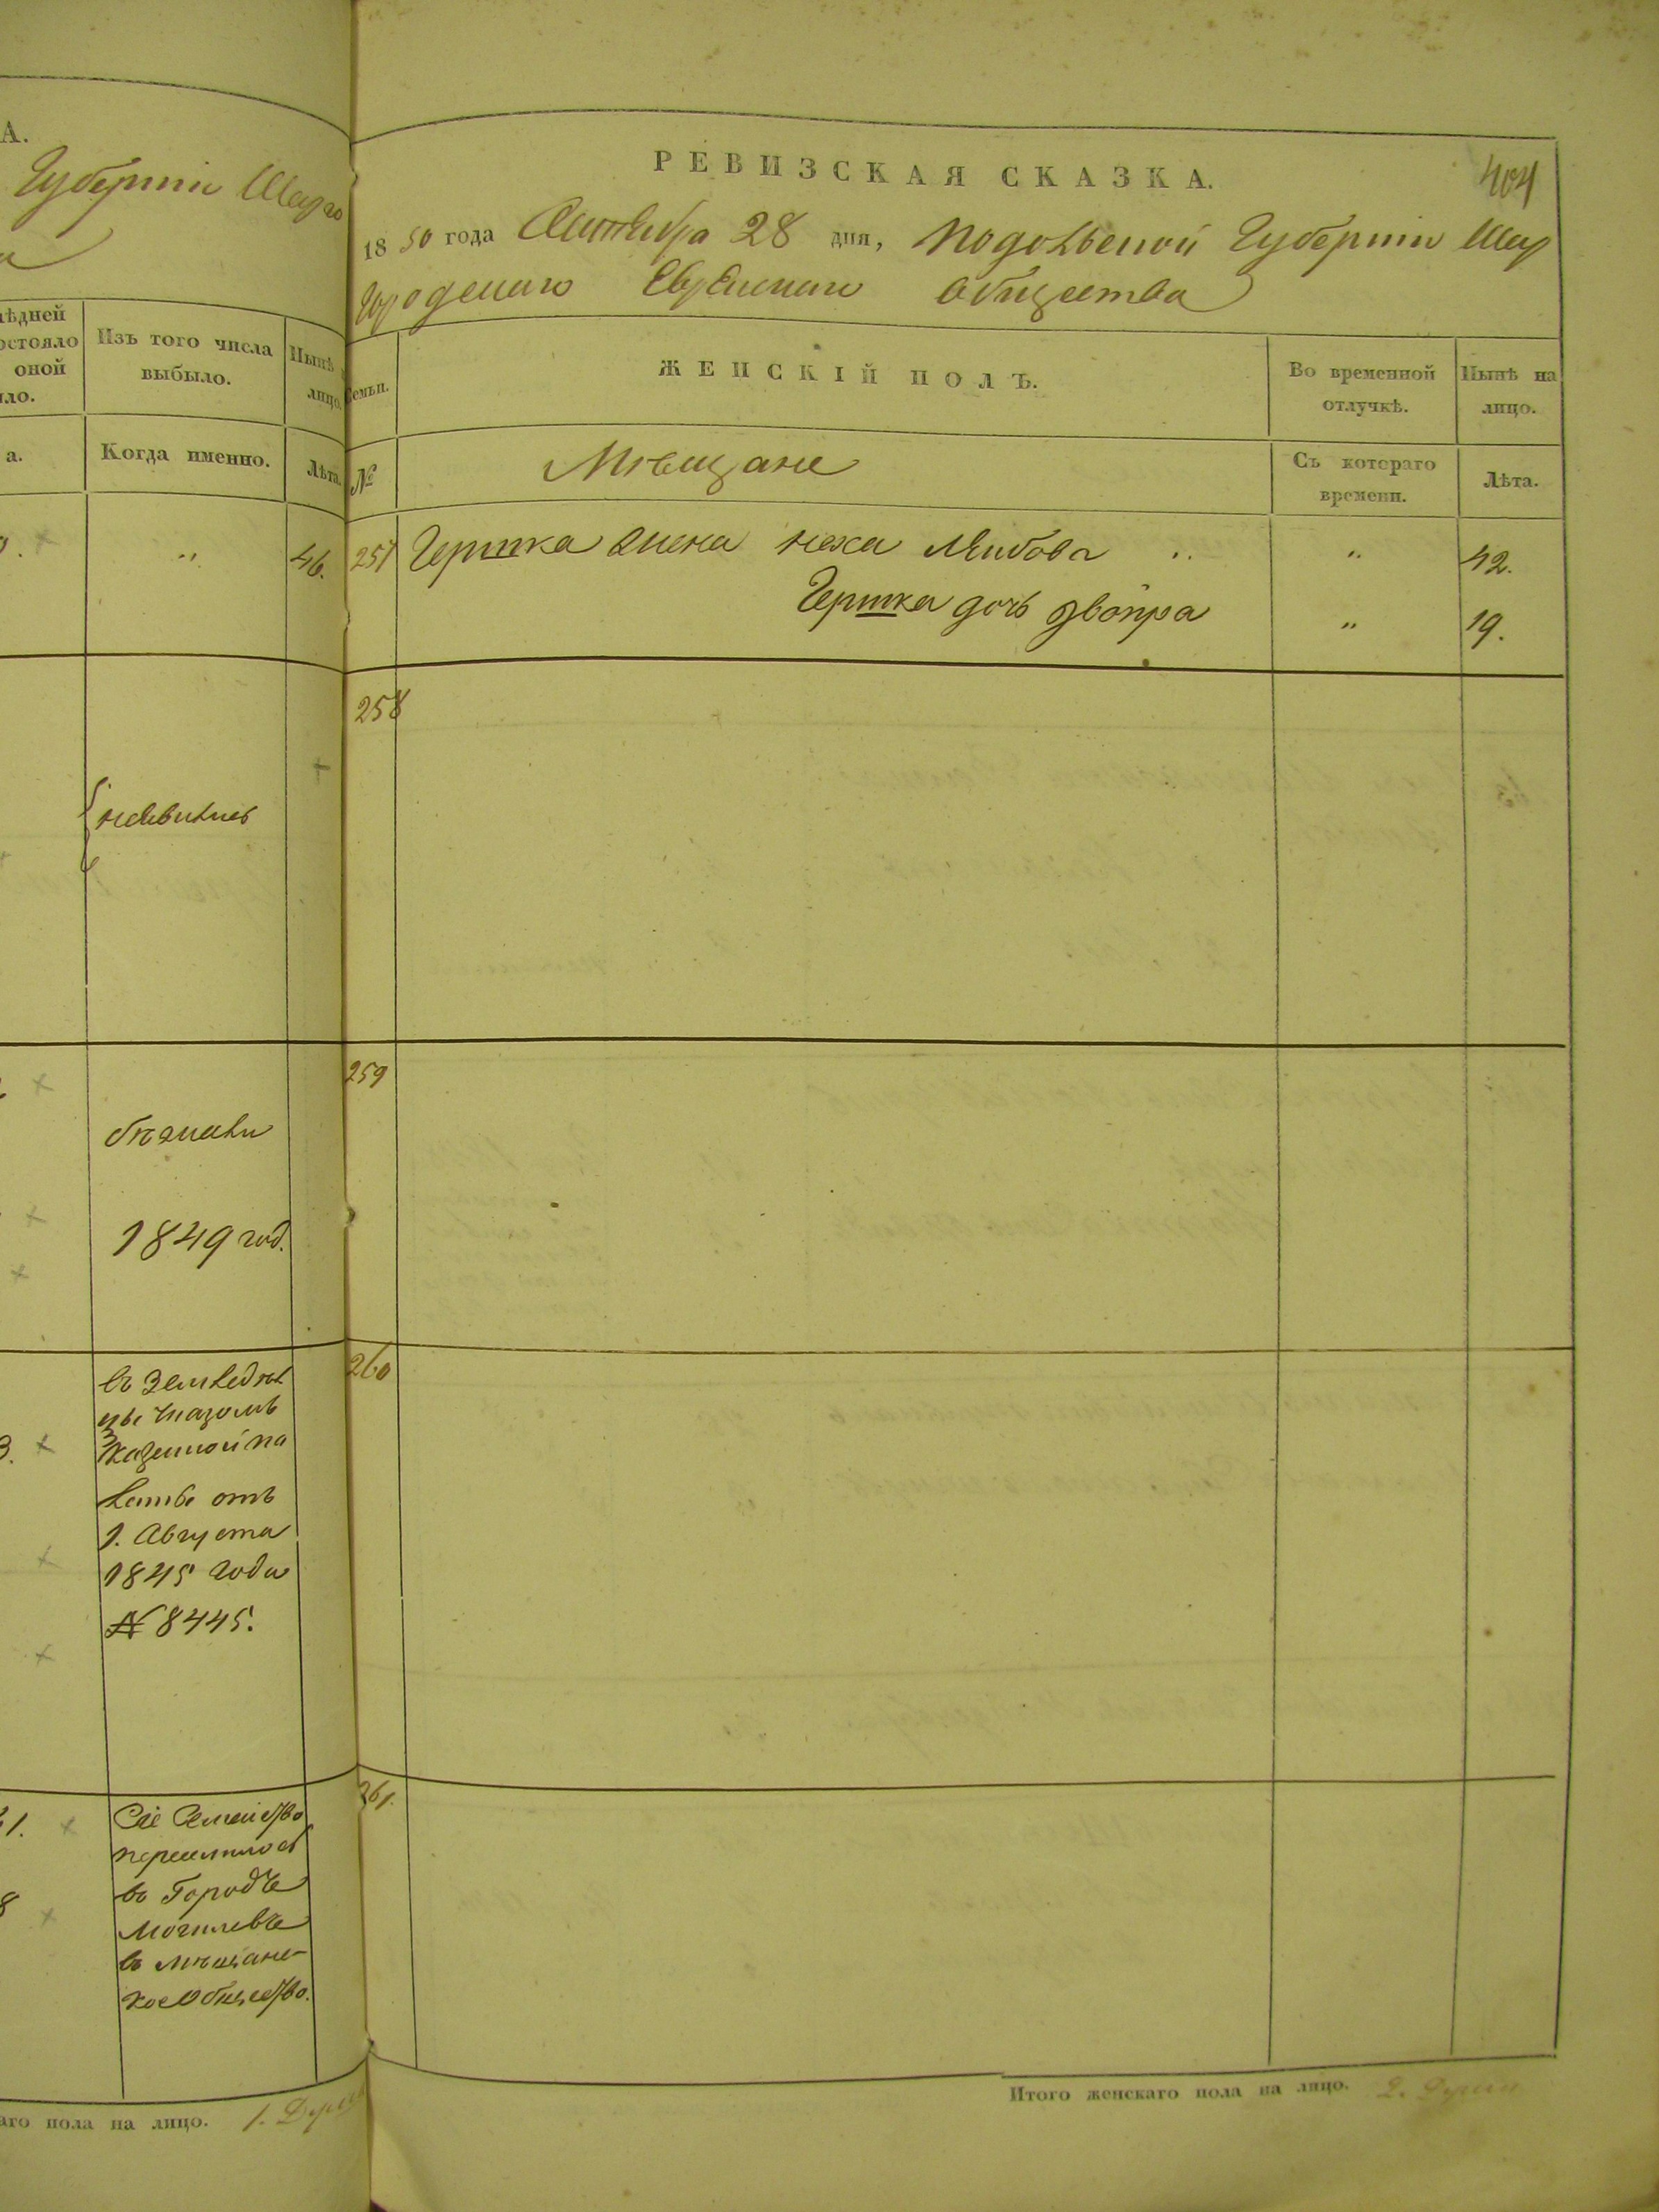 А.
Губерніи Шарго
а
лѣдней
остояло
оной
ыло.
Изъ того числа
выбыло.
Нынѣ
лицо.
а.
Когда именно.
Лѣта.
46.
неявились
бѣжали
1849 год.
3.
въ Земледѣл
цы Указомъ
Казенной Па
латы отъ
1. Августа
1845 года
№ 8445.
1.
8
Сіе Семейство
переселилось
въ Городѣ
Могилевѣ
въ мѣщанс-
кое Общество.
аго пола на лицо. 1. Душа
РЕВИЗСКАЯ СКАЗКА.
404
1850 года Октября 28 дня, Подольской Губерніи Шар
городскаго Еврейскаго Общества
Семьи.
ЖЕНСКІЙ ПОЛЪ.
Во временной
отлучкѣ.
Нынѣ на
лицо.
№
Мѣщане
Съ котораго
времени.
Лѣта.
257 Гершка жена Неха Лейбова „ 42.
Гершка дочь Двойра „ 19.
258
259
260
261.
Итого женскаго пола на лицо. 2. Души